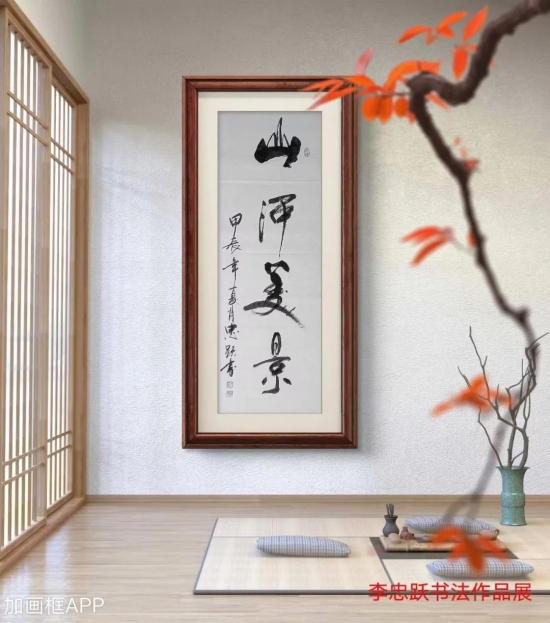 山河美景
甲辰年夏月忠跃书
李忠跃书法作品展
加画框APP